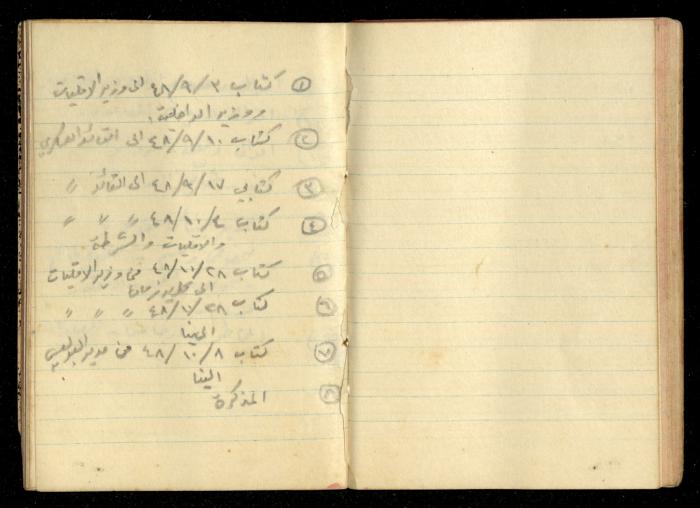 ① كتاب ٣/٩/٤٨ الى وزير الاقليات
ووزير الداخلية.
② كتاب ١٠/٩/٤٨ الى القائد العسكري
③ كتابي ١٧/٩/٤٨ الى القائد "
④ كتاب ٤/١٠/٤٨ " " "
والاقليات والشرطة
⑤ كتاب ٢٨/١٠/٤٨ من وزير الاقليات
الى
⑥ كتاب ٢٨/١٠/٤٨ " " "
الينا
⑦ كتاب ٨/١٠/٤٨ من مدير البوليس
الينا
⑧ المذكرة